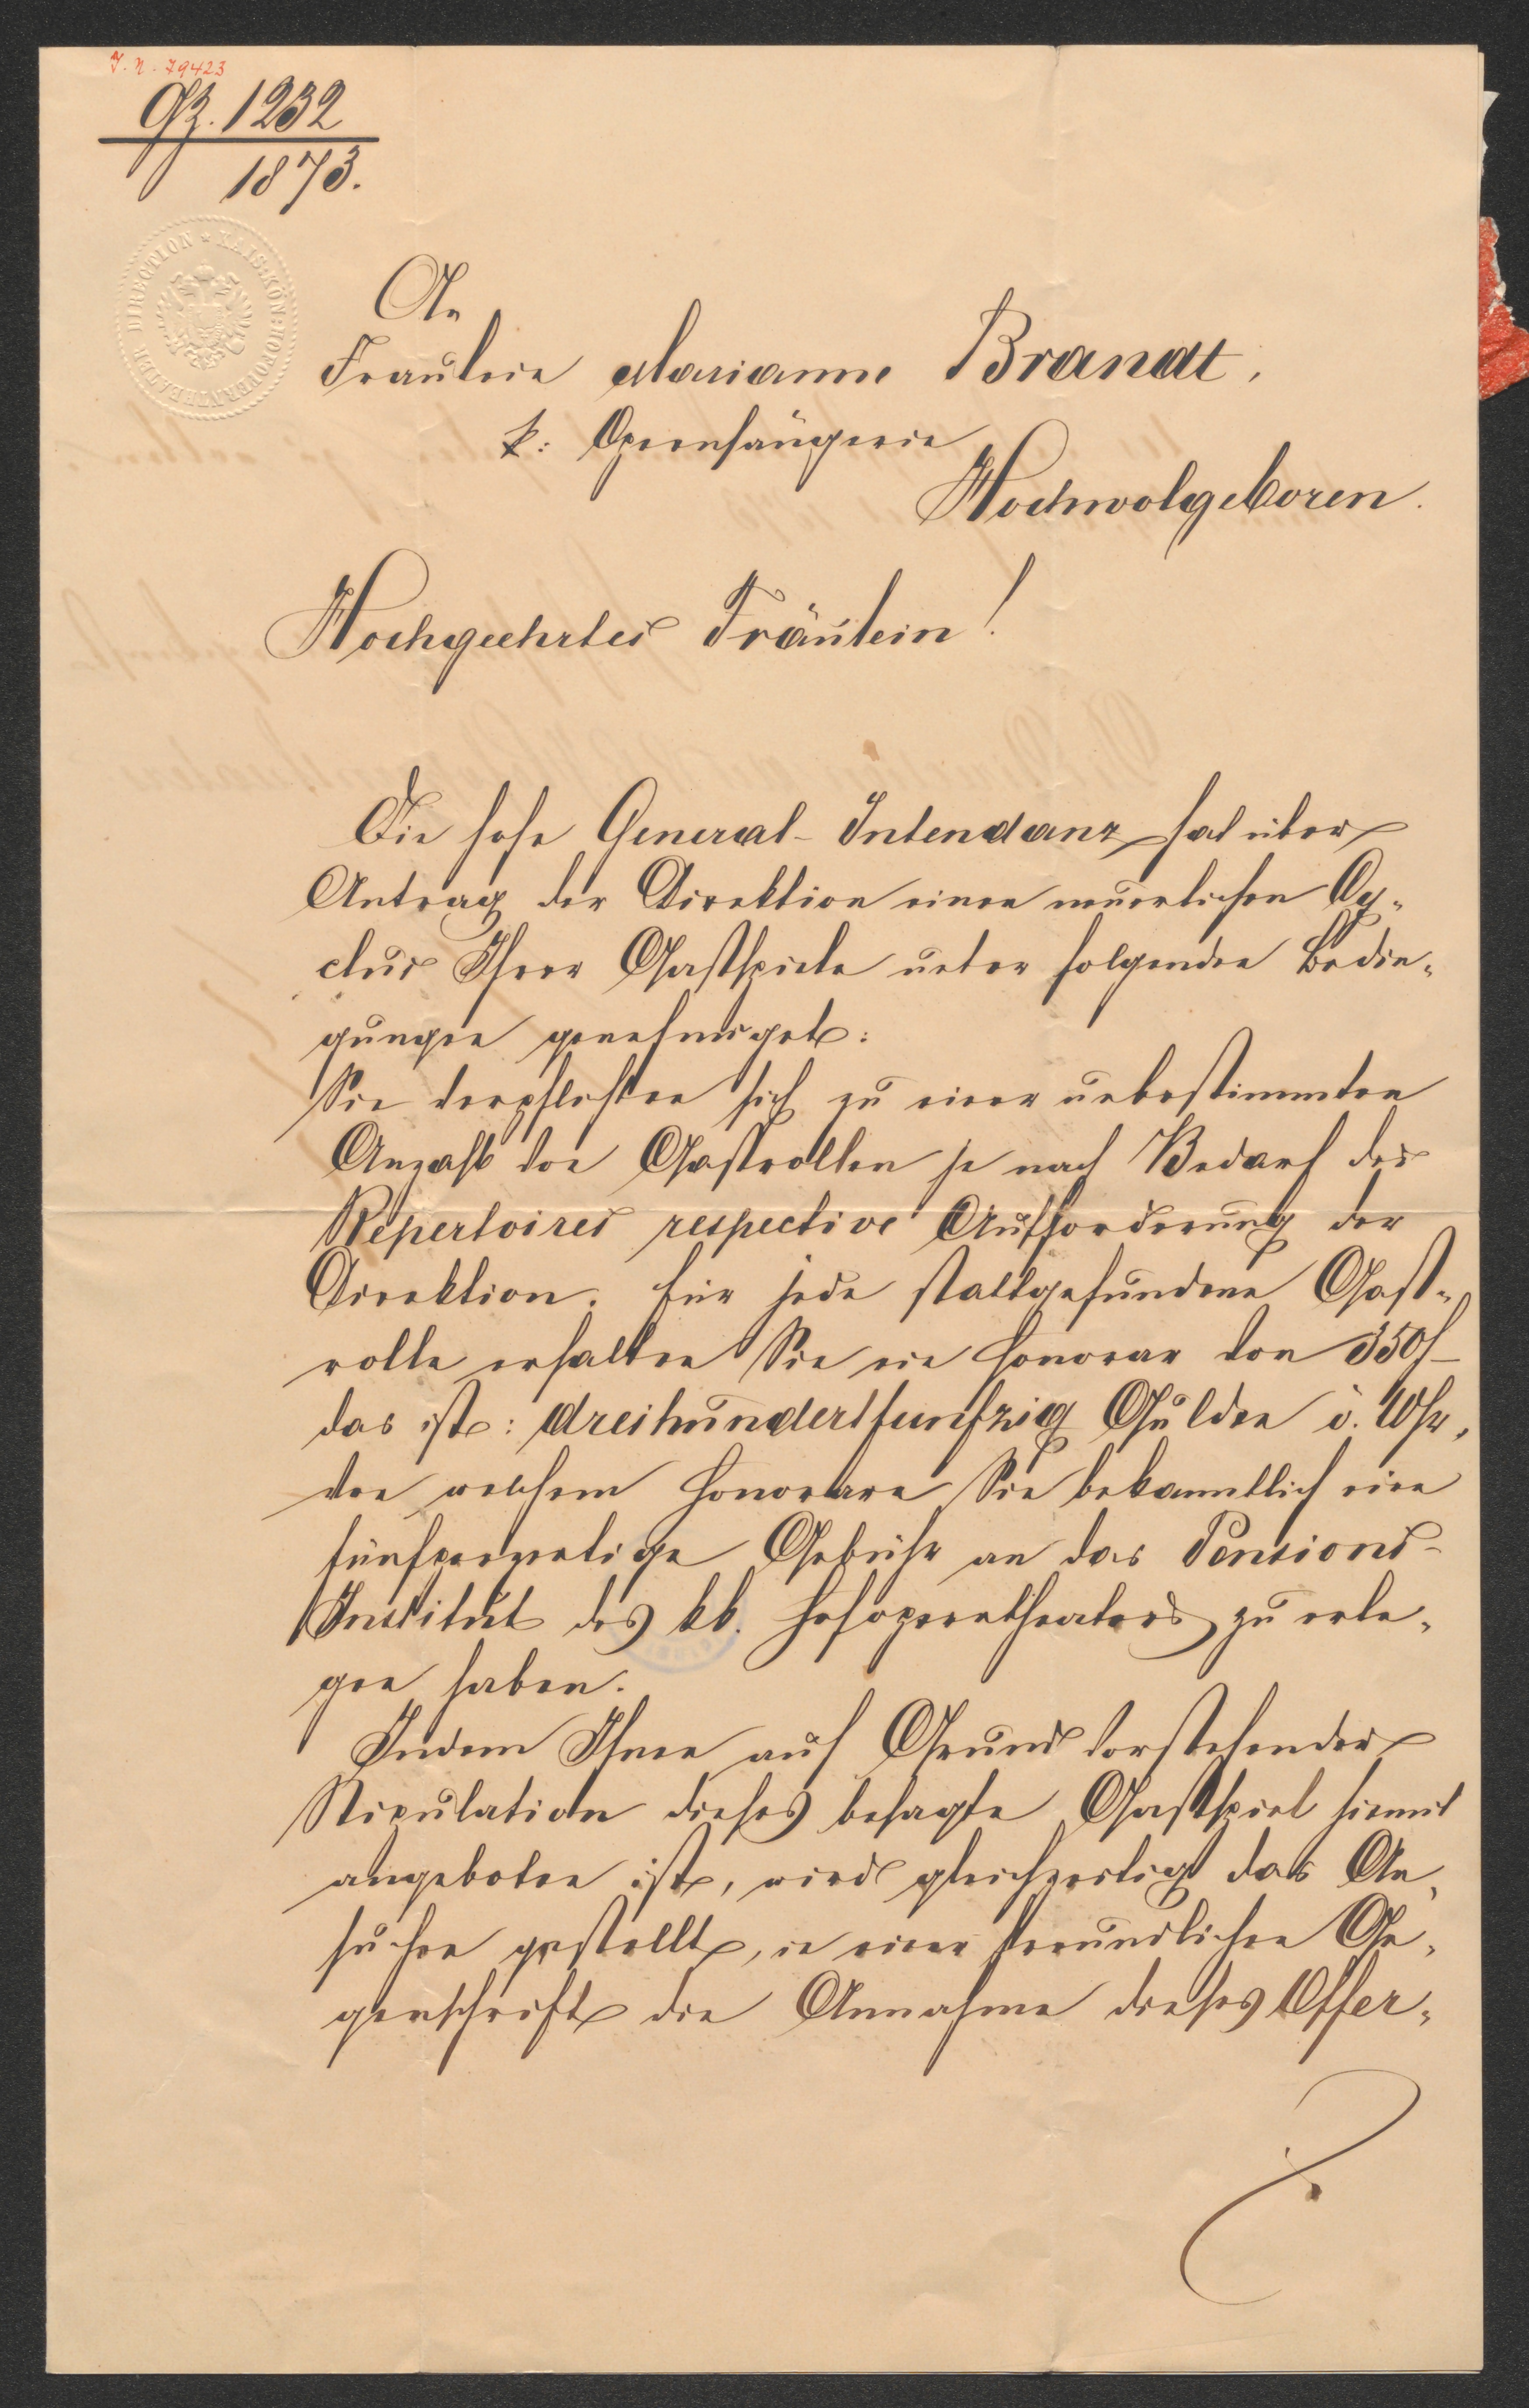 J. N. 79423
Gz. 1232
1873.
KAIS: KÖN: HOFOPERNTHEATER DIRECTION *
An
Fräulein Marianne Brandt,
k: Opernsängerin
Hochwolgeboren.
Hochgeehrtes Fräulein!
Die hohe General-Intendanz hat über
Antrag der Direktion einen neuerlichen Cy-
clus Ihrer Gastspiele unter folgenden Bedin-
gungen genehmiget:
Sie verpflichten sich zu einer unbestimmten
Anzahl von Gastrollen je nach Bedarf des
Repertoires respective Aufforderung der
Direktion. Für jede stattgefundene Gast-
rolle erhalten Sie ein Honorar von 350 f
das ist: dreihundertfünfzig Gulden ö. Whr,
von welchem Honorare Sie bekanntlich eine
fünfperzentige Gebühr an das Pensions-
Institut des kk. Hofoperntheaters zu erle-
gen haben.
Indem Ihnen auf Grund vorstehender
Stipulation dieses besagte Gastspiel hiemit
angeboten ist, wird gleichzeitig das An-
suchen gestellt, in einer freundlichen Ge-
genschrift die Annahme dieses Offer-